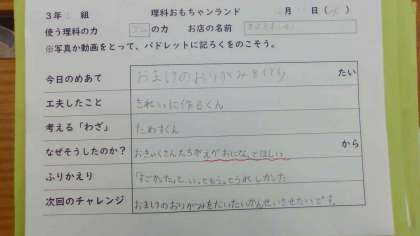 3年 組 理科おもちゃランド 月 日( )
使う理科の力 の力 お店の名前
※写真か動画をとって、パドレットに記ろくをのこそう。
今日のめあて おまけのおりがみを作り たい
工夫したこと きれいに作るくん
考える「わざ」 たわすくん
なぜそうしたのか? おきゃくさんたちがえがおになってほしい から
ふりかえり 「すごかった」と、いってもらってうれしかった
次回のチャレンジ おまけのおりがみをだいたいかんせいさせたいです。